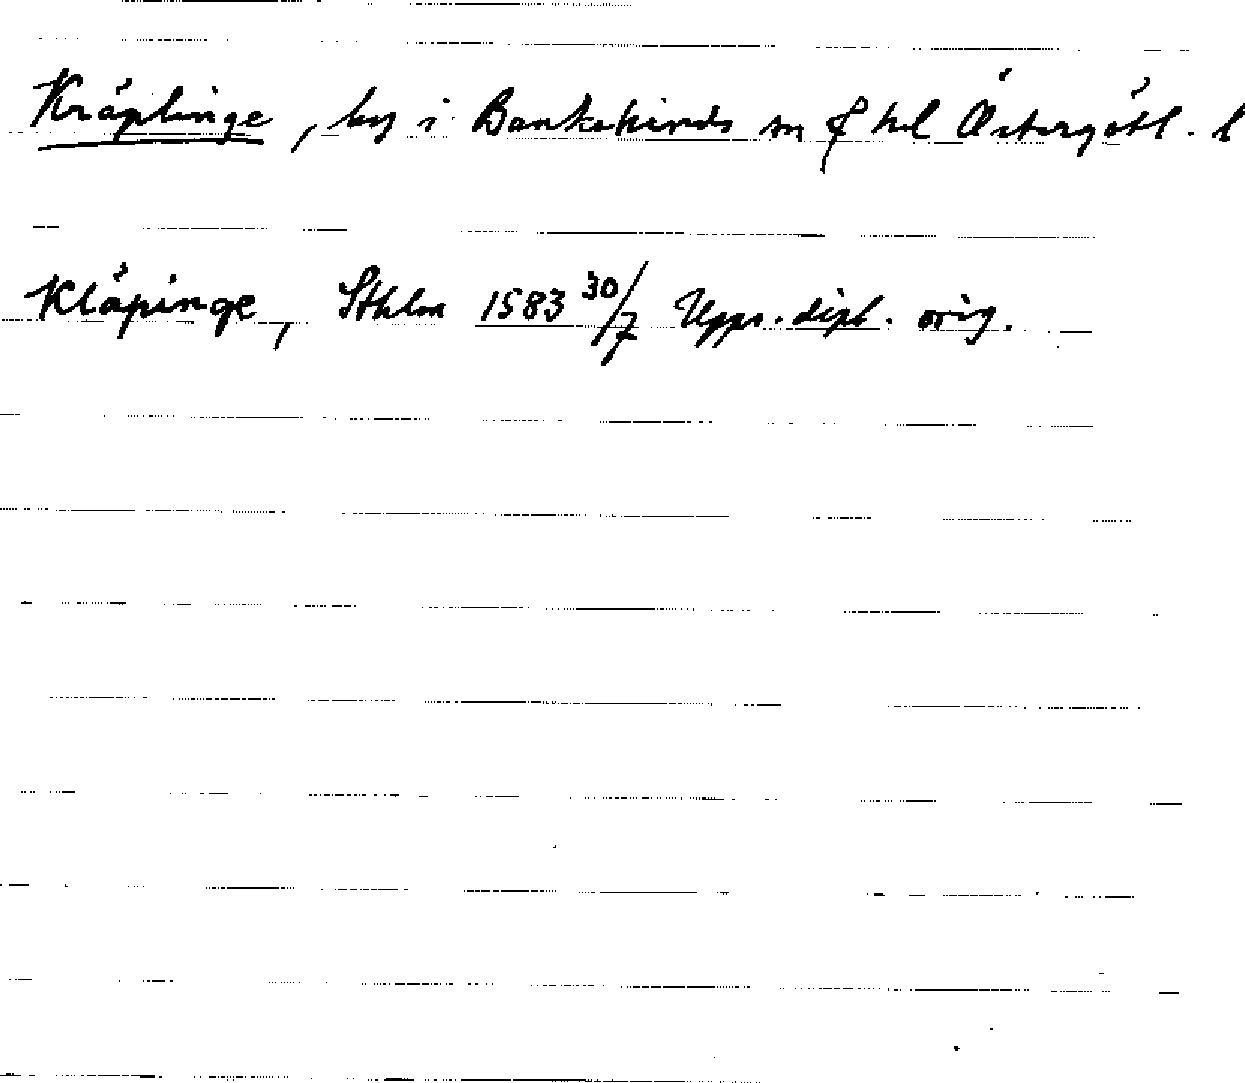 Kräplinge, by i Bankekinds sn o hd Östergötl. l
Kläpinge, Sthlm 1583 30/7 Upps. dipl. orig.